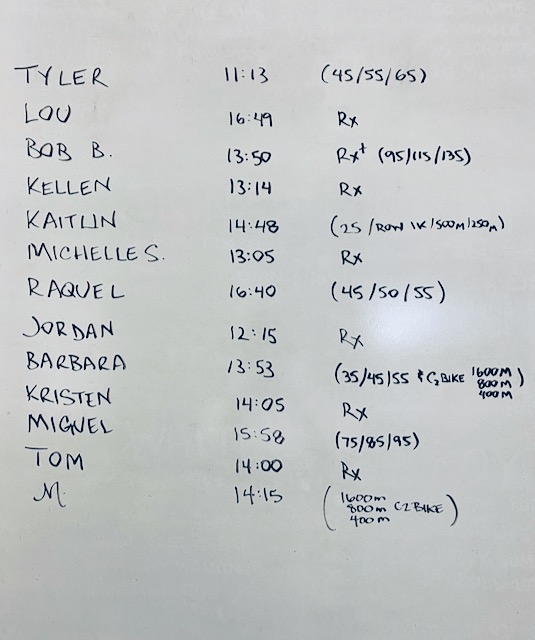 TYLER 11:13 (45/55/65)
LOU 16:49 Rx
BOB B. 13:50 Rx+ (95/115/135)
KELLEN 13:14 Rx
KAITLIN 14:48 (25/ROW 1K/500M/250M)
MICHELLE S. 13:05 Rx
RAQUEL 16:40 (45/50/55)
JORDAN 12:15 Rx
BARBARA 13:53 (35/45/55 & C2 BIKE 1600M
800M
400M)
KRISTEN 14:05 Rx
MIGUEL 15:58 (75/85/95)
TOM 14:00 Rx
M. 14:15 (1600m
800m C2 BIKE)
400m